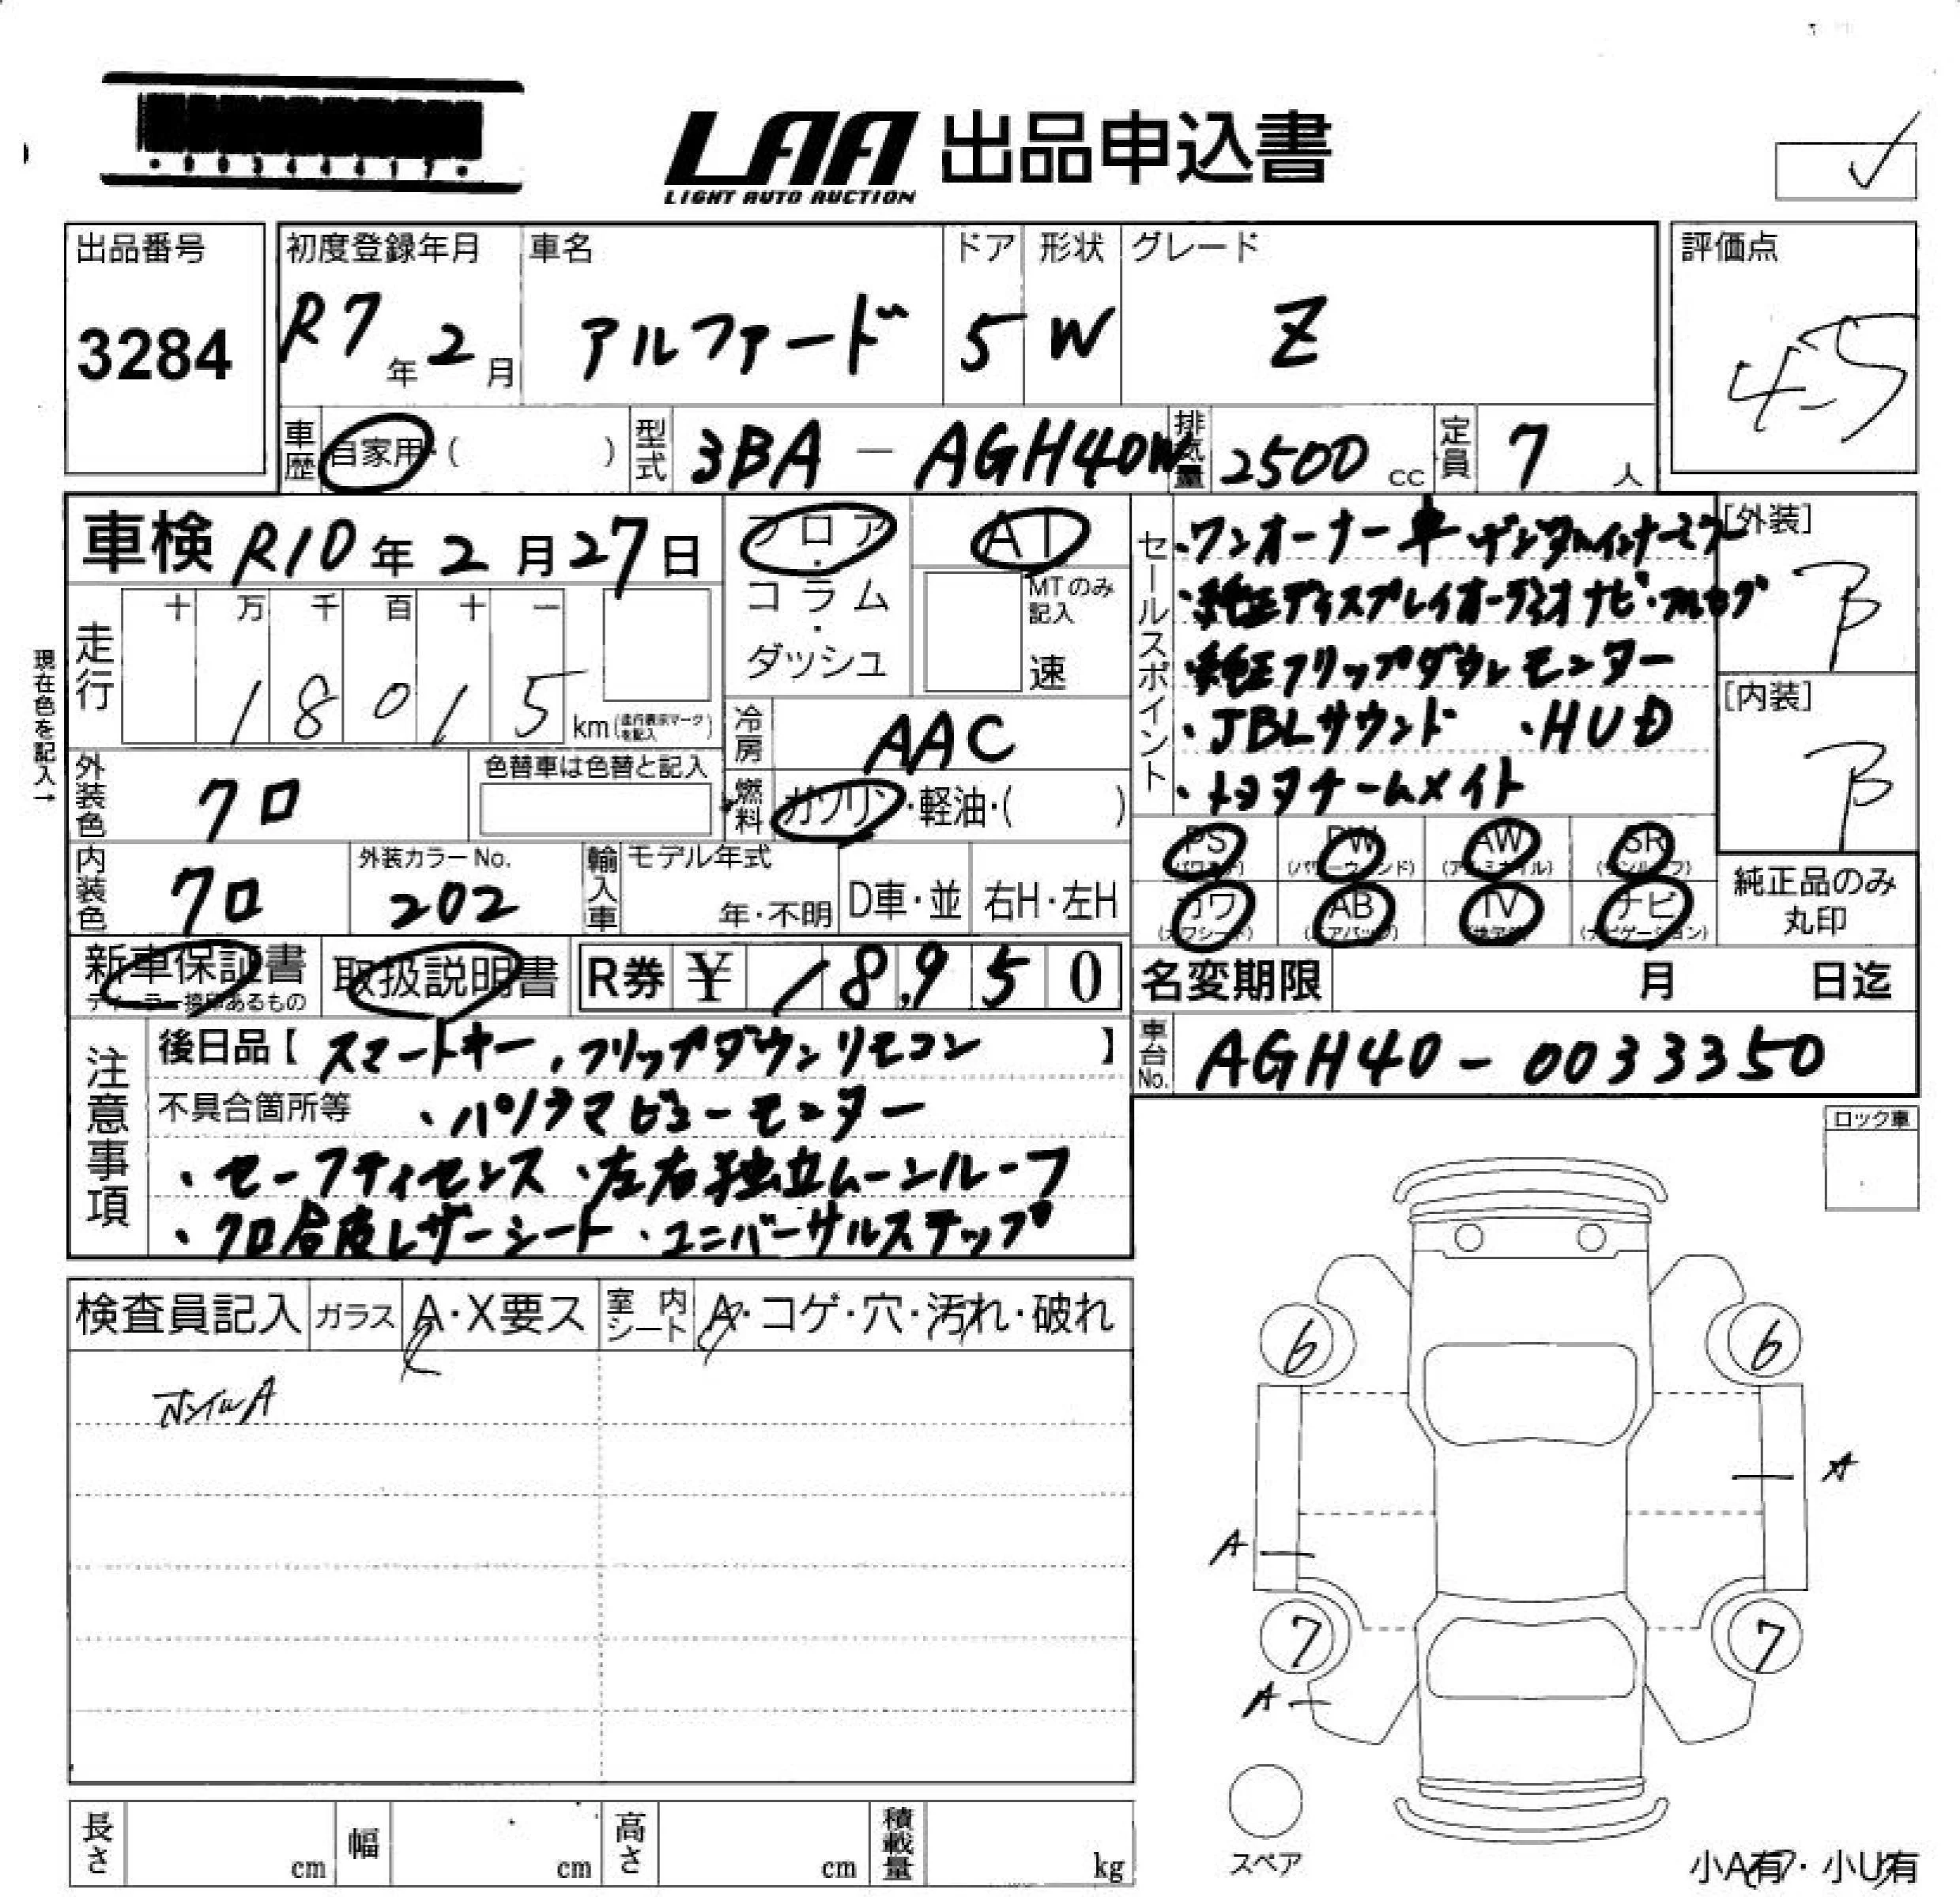 LAA 出品申込書
LIGHT AUTO AUCTION
出品番号
3284
初度登録年月
R7年2月
車名
アルファード
ドア
5
形状
W
グレード
Z
評価点
4.5
車歴 自家用・( )
型式 3BA-AGH40W
排気量 2500 cc
定員 7人
車検 R10年2月27日
フロア・コラム・ダッシュ
AT
MTのみ記入
速
走行
十 万 千 百 十 一
1 8 0 1 5 km (走行表示マークを記入)
現在色を記入→
冷房 AAC
外装色 クロ
色替車は色替と記入
燃料 ガソリン・軽油・( )
内装色 クロ
外装カラーNo.
202
輸入車
モデル年式
年・不明
D車・並
右H・左H
セールスポイント
・ワンオーナー車 デジタルインナーミラー
・純正ディスプレイオーディオナビ・フルセグ
・純正フリップダウンモニター
・JBLサウンド ・HUD
・トヨタチームメイト
[外装]
B
[内装]
B
PS (パワステ)
PW (パワーウィンド)
AW (アルミホイル)
SR (サンルーフ)
カワ (カワシート)
AB (エアバッグ)
TV
ナビ (ナビゲーション)
純正品のみ丸印
新車保証書
ディーラー捺印あるもの
取扱説明書
R券 ¥ 18,950
名変期限 月 日迄
車台No. AGH40-0033350
注意事項
後日品【スマートキー、フリップダウンリモコン】
不具合箇所等 ・パノラマビューモニター
・セーフティセンス ・左右独立ムーンルーフ
・クロ合皮レザーシート ・ユニバーサルステップ
ロック車
検査員記入 ガラス A・X要ス 室内シート A・コゲ・穴・汚れ・破れ
ホイルA
6
6
A
A
7
7
A
スペア
小A有・小U有
長さ cm 幅 cm 高さ cm 積載量 kg